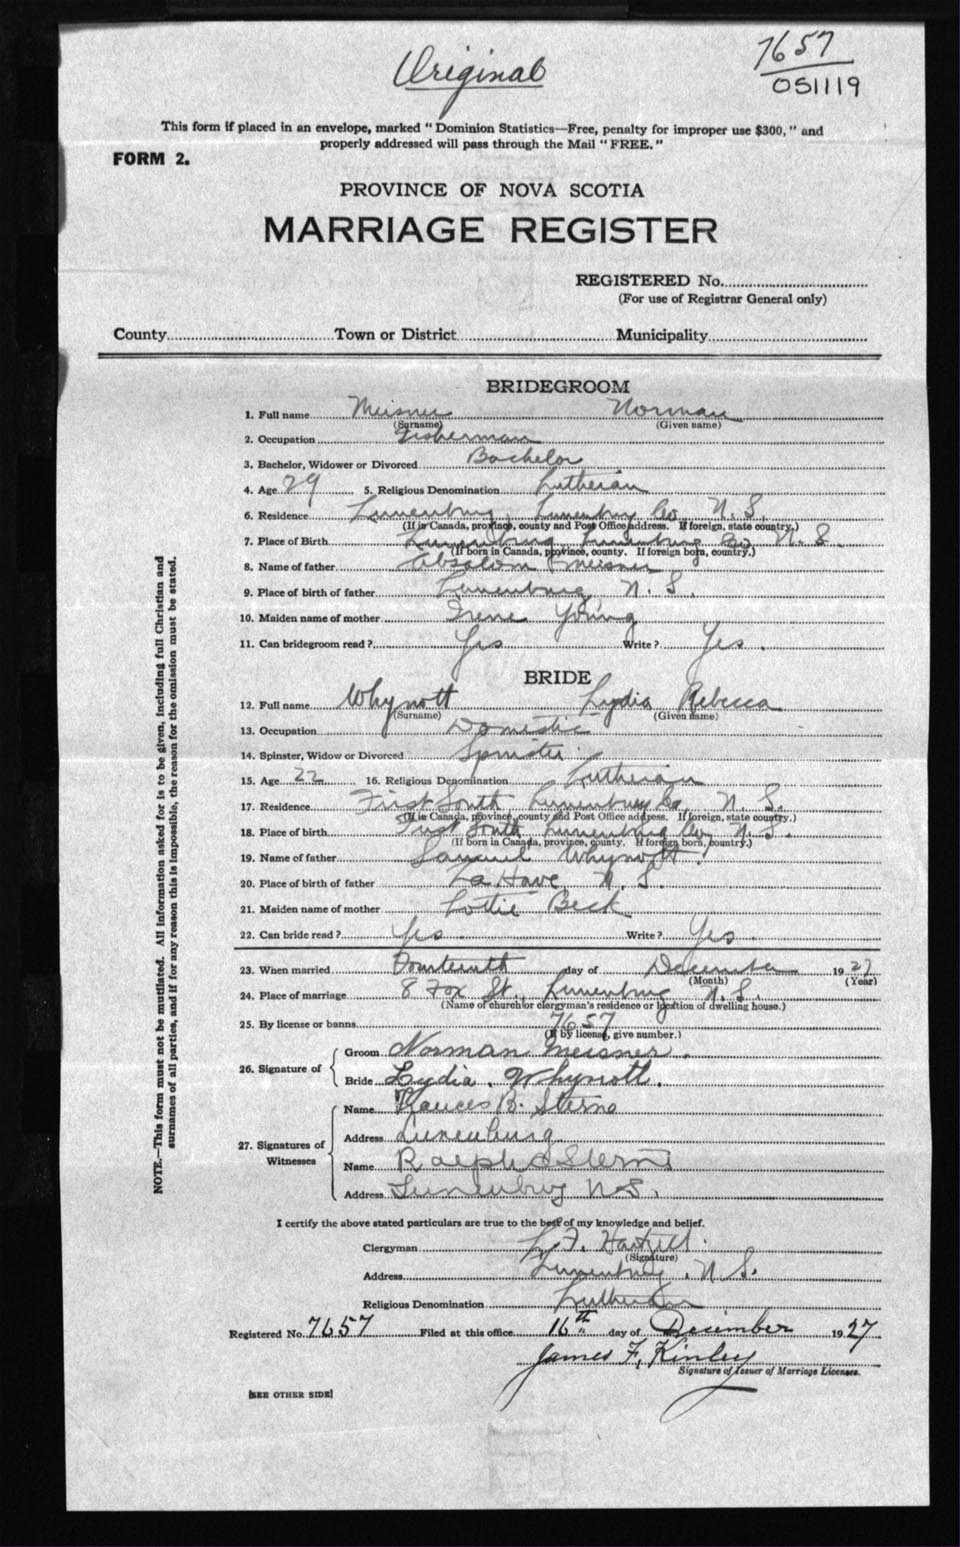 Original
7657
051119
This form if placed in an envelope, marked "Dominion Statistics—Free, penalty for improper use $300," and
properly addressed will pass through the Mail "FREE."
FORM 2.
PROVINCE OF NOVA SCOTIA
MARRIAGE REGISTER
REGISTERED No.
(For use of Registrar General only)
County Town or District Municipality
BRIDEGROOM
1. Full name Meisner Norman
(Surname) (Given name)
2. Occupation Fisherman
3. Bachelor, Widower or Divorced Bachelor
4. Age 29 5. Religious Denomination Lutheran
6. Residence Lunenburg, Lunenburg Co, N. S.
(If in Canada, province, county and Post Office address. If foreign, state country.)
7. Place of Birth Lunenburg Lunenburg Co N. S.
(If born in Canada, province, county. If foreign born, country.)
8. Name of father Absalom Meisner
9. Place of birth of father Lunenburg N. S.
10. Maiden name of mother Irene Young
11. Can bridegroom read? Yes Write? Yes.
BRIDE
12. Full name Whynott Lydia Rebecca
(Surname) (Given name)
13. Occupation Domestic
14. Spinster, Widow or Divorced Spinster
15. Age 22 16. Religious Denomination Lutheran
17. Residence First South, Lunenburg Co, N. S.
(If in Canada, province, county and Post Office address. If foreign, state country.)
18. Place of birth First South Lunenburg Co, N. S.
(If born in Canada, province, county. If foreign born, country.)
19. Name of father Samuel Whynott.
20. Place of birth of father La Have N. S.
21. Maiden name of mother Lottie Beck
22. Can bride read? Yes. Write? Yes.
23. When married Fourteenth day of December 1927
(Month) (Year)
24. Place of marriage 8 Fox St., Lunenburg N. S.
(Name of church or clergyman's residence or location of dwelling house.)
25. By license or banns 7657
(If by license, give number.)
26. Signature of
Groom Norman Meisner.
Bride Lydia. Whynott.
27. Signatures of Witnesses
Name B. Sterns
Address Lunenburg
Name Ralph Sterns
Address Lunenburg N.S.
I certify the above stated particulars are true to the best of my knowledge and belief.
Clergyman F. Hartzell.
(Signature)
Address Lunenburg, N S.
Religious Denomination Lutheran
Registered No. 7657 Filed at this office 16th day of December 1927
James F. Kinley
Signature of Issuer of Marriage Licenses.
[SEE OTHER SIDE]
NOTE.—This form must not be mutilated. All information asked for is to be given, including full Christian and
surnames of all parties, and if for any reason this is impossible, the reason for the omission must be stated.